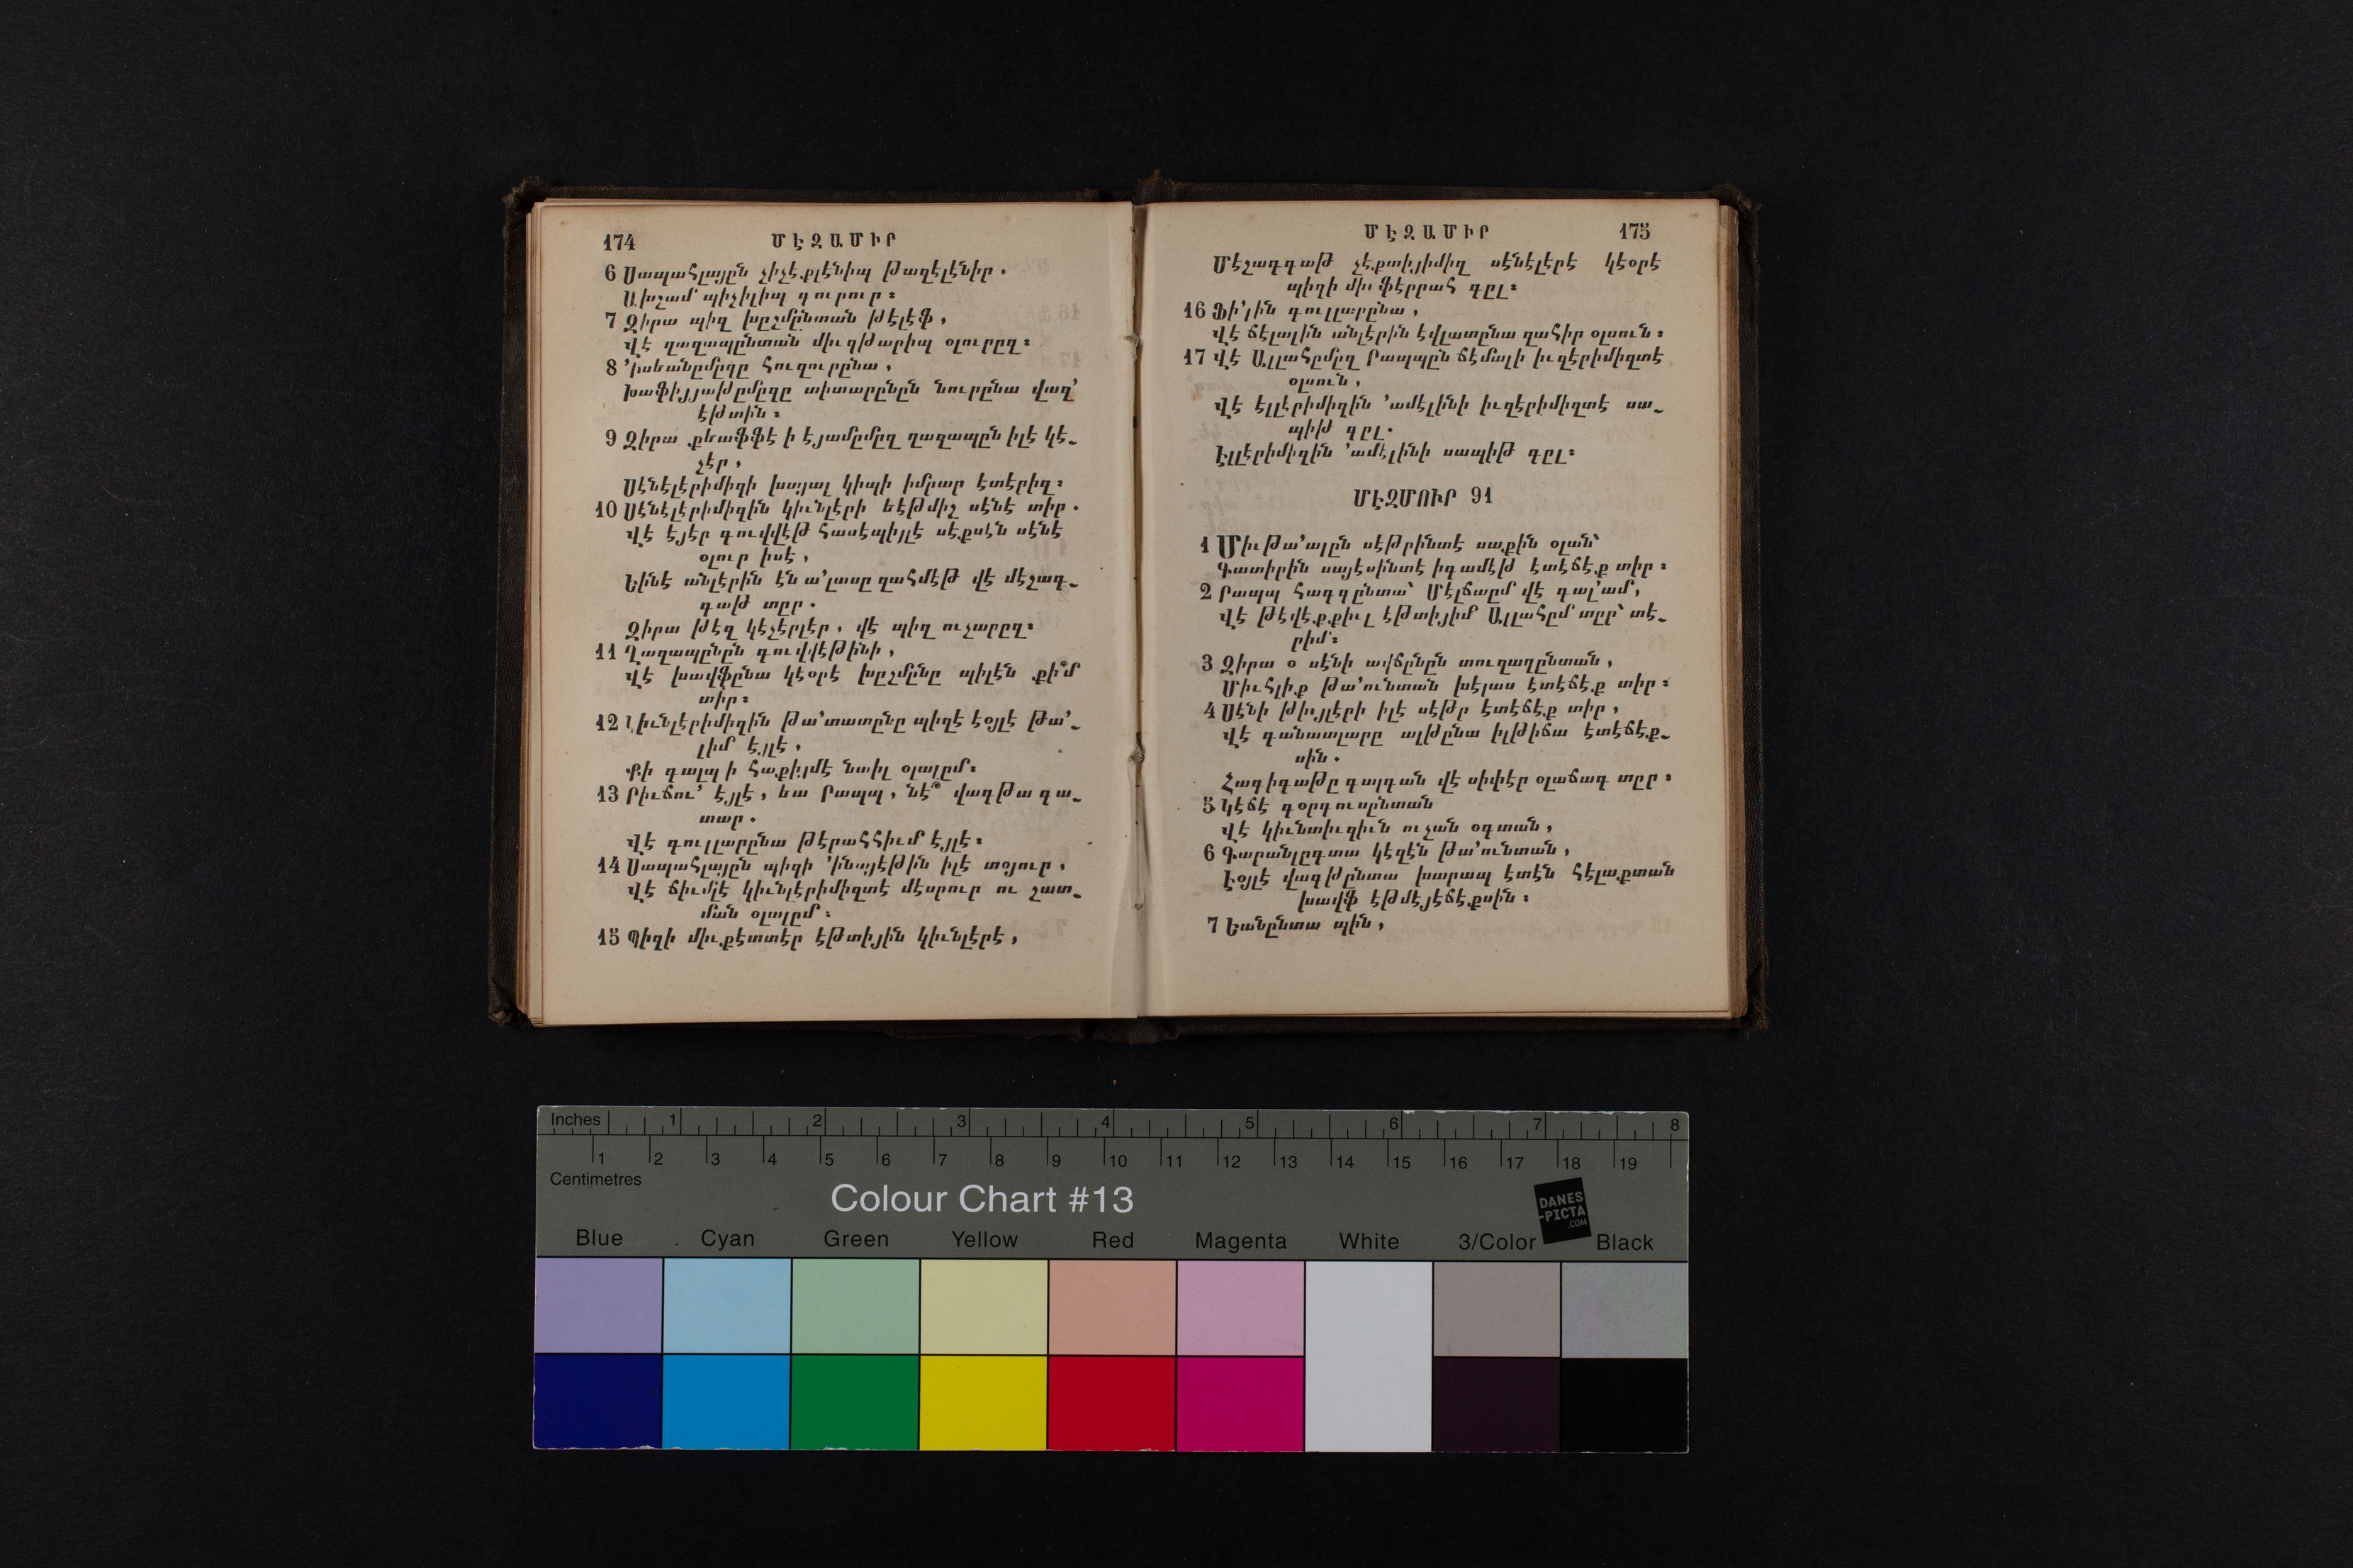 174 ՄԷԶԱՄԻՐ
6 Սապահլայըն չիչէքլէնիպ թազէլէնիր.
Ախշամ պիչիլիպ գուրուր։
7 Զիրա պիզ խըշմընտան թէլէֆ,
Վէ ղազապընտան միւզթարիպ օլուրըզ։
8 ՚Իսեանըմըզը հուզուրընա,
Խաֆիյյաթըմըզը տիտարընըն նուրընա վազ՚
էթտին։
9 Զիրա քեաֆֆէ ի էյամըմըզ ղազապըն իլէ կէ-
չէր,
Սէնէլէրիմիզի խայալ կիպի իմրար էտէրիզ։
10 Սէնէլէրիմիզին կիւնլէրի եէթմիշ սէնէ տիր.
Վէ էյէր գուվվէթ հասէպիյլէ սէքսէն սէնէ
օլուր իսէ,
Եինէ անլէրին էն ա՚լասը զահմէթ վէ մէշագ-
գաթ տըր.
Զիրա թէզ կէչէրլէր, վէ պիզ ուչարըզ։
11 Ղազապընըն գուվվէթինի,
Վէ խավֆընա կէօրէ խըշմընը պիլէն քի՞մ
տիր։
12 Կիւնլէրիմիզին թա՚տատընը պիզէ էօյլէ թա՚-
լիմ էյլէ,
Քի գալպ ի հաքիյմէ նաիլ օլալըմ։
13 Րիւճու՚ էյլէ, եա Րապպ, նէ՞ վազթա գա-
տար.
Վէ գուլլարընա թէրահհիւմ էյլէ։
14 Սապահլայըն պիզի ՚ինայէթին իլէ տօյուր,
Վէ ճիւմլէ կիւնլէրիմիզտէ մէսրուր ու շատ-
ման օլալըմ։
15 Պիզի միւքէտտէր էթտիյին կիւնլէրէ,
ՄԷԶԱՄԻՐ 175
Մէշագգաթ չէքտիյիմիզ սէնէլէրէ կէօրէ
պիզի միւֆէրրահ գըլ։
16 Ֆի՚լին գուլլարընա,
Վէ ճէլալին անլէրին էվլատընա զահիր օլսուն։
17 Վէ Ալլահըմըզ Րապպըն ճէմալի իւզէրիմիզտէ
օլսուն,
Վէ էլլէրիմիզին ՚ամէլինի իւզէրիմիզտէ սա-
պիթ գըլ.
Էլլէրիմիզին ՚ամէլինի սապիթ գըլ։
ՄԷԶՄՈՒՐ 91
1 Միւթա՚ալըն սէթրինտէ սաքին օլան՝
Գատիրին սայէսինտէ իգամէթ էտէճէք տիր։
2 Րապպ հագգընտա՝ Մէլճաըմ վէ գալ՚ամ,
Վէ թէվէքքիւլ էթտիյիմ Ալլահըմ տըր՝ տէ-
րիմ։
3 Զիրա օ սէնի ավճընըն տուզաղընտան,
Միւհլիք թա՚ունտան խէլաս էտէճէք տիր։
4 Սէնի թիւյլէրի իլէ սէթր էտէճէք տիր,
Վէ գանատլարը ալթընա իլթիճա էտէճէք-
սին.
Հագիգաթը գալգան վէ սիփէր օլաճագ տըր։
5 Կէճէ գօրգուսընտան
Վէ կիւնտիւզիւն ուչան օգտան,
6 Գարանլըգտա կէզէն թա՚ունտան,
Էօյլէ վազթընտա խարապ էտէն հէլաքտան
խավֆ էթմէյէճէքսին։
7 Եանընտա պին,
Inches 1 2 3 4 5 6 7 8
1 2 3 4 5 6 7 8 9 10 11 12 13 14 15 16 17 18 19
Centimetres
Colour Chart #13
DANES
-PICTA
.COM
Blue Cyan Green Yellow Red Magenta White 3/Color Black